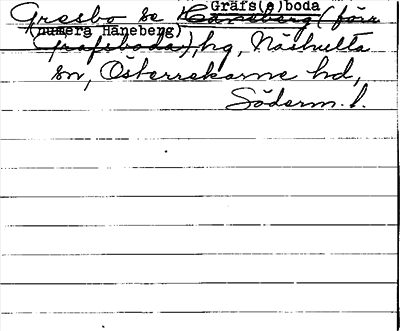 Gräfs(e)boda
Gresbo se Häneberg (förr
(numera Häneberg)
Gräfsboda), hg, Näshulta
sn, Österrekarne hd,
Söderm. l.